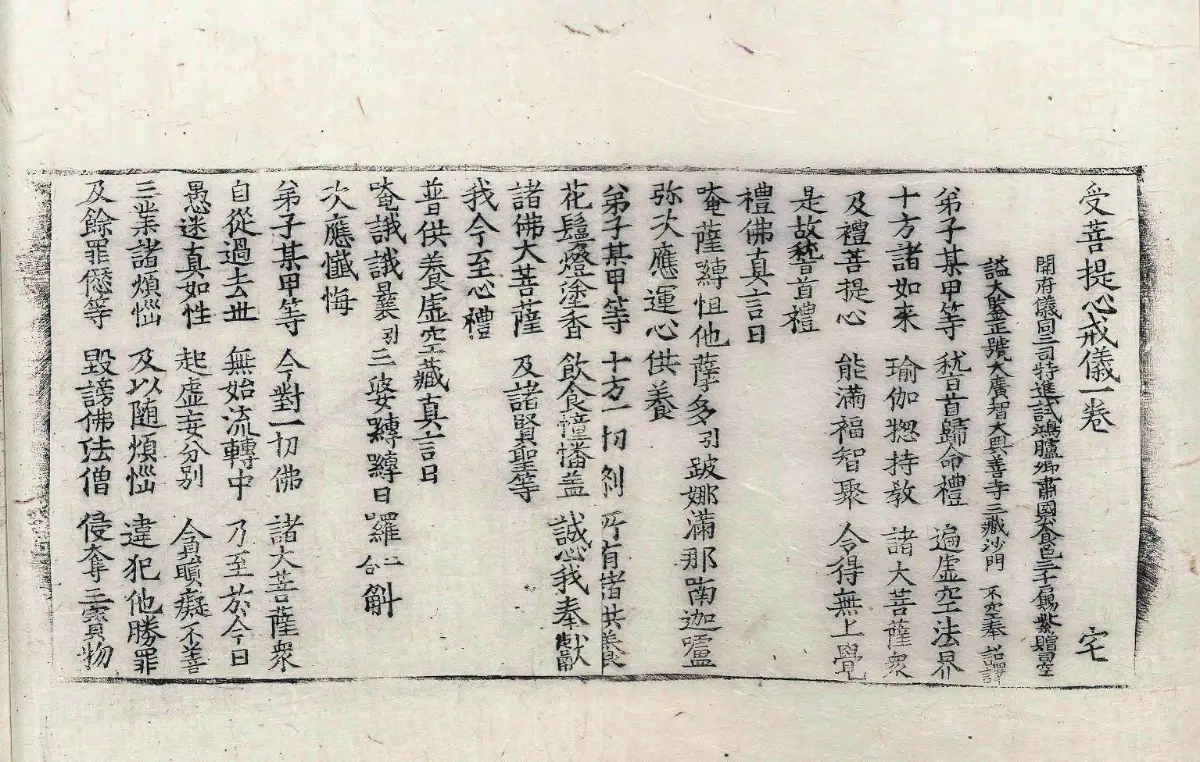 受菩提心戒儀一卷 宅
開府儀同三司特進試鴻臚卿肅國公食邑三千戶賜紫贈司空
謚大鑒正號大廣智大興善寺三藏沙門 不空奉 詔譯
弟子某甲等 稽首歸命禮 遍虛空法界
十方諸如來 瑜伽惣持教 諸大菩薩衆
及禮菩提心 能滿福智聚 令得無上覺
是故稽首禮
禮佛真言曰
唵薩嚩怛他薩孽多引跛娜滿那南迦嚧
弥次應運心供養
弟子某甲等 十方一切剎 所有諸供養
花鬘燈塗香 飲食幢幡盖 誠心我奉獻
諸佛大菩薩 及諸賢聖等
我今至心禮
普供養虛空藏真言曰
唵誐誐曩引三婆嚩嚩日囉二合斛
次應懺悔
弟子某甲等 今對一切佛 諸大菩薩衆
自從過去世 無始流轉中 乃至於今日
愚迷真如性 起虛妄分別 貪瞋癡不善
三業諸煩惱 及以随煩惱 違犯他勝罪
及餘罪愆等 毀謗佛法僧 侵奪三寶物